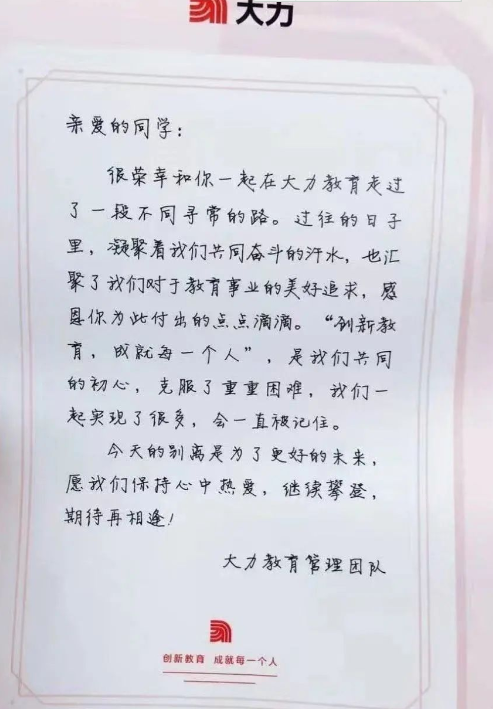 大力
亲爱的同学：
很荣幸和你一起在大力教育走过
了一段不同寻常的路。过往的日子
里，凝聚着我们共同奋斗的汗水，也汇
聚了我们对于教育事业的美好追求，感
恩你为此付出的点点滴滴。“创新教
育，成就每一个人”，是我们共同
的初心，克服了重重困难，我们一
起实现了很多，会一直被记住。
今天的别离是为了更好的未来，
愿我们保持心中热爱，继续攀登，
期待再相逢！
大力教育管理团队
创新教育 成就每一个人